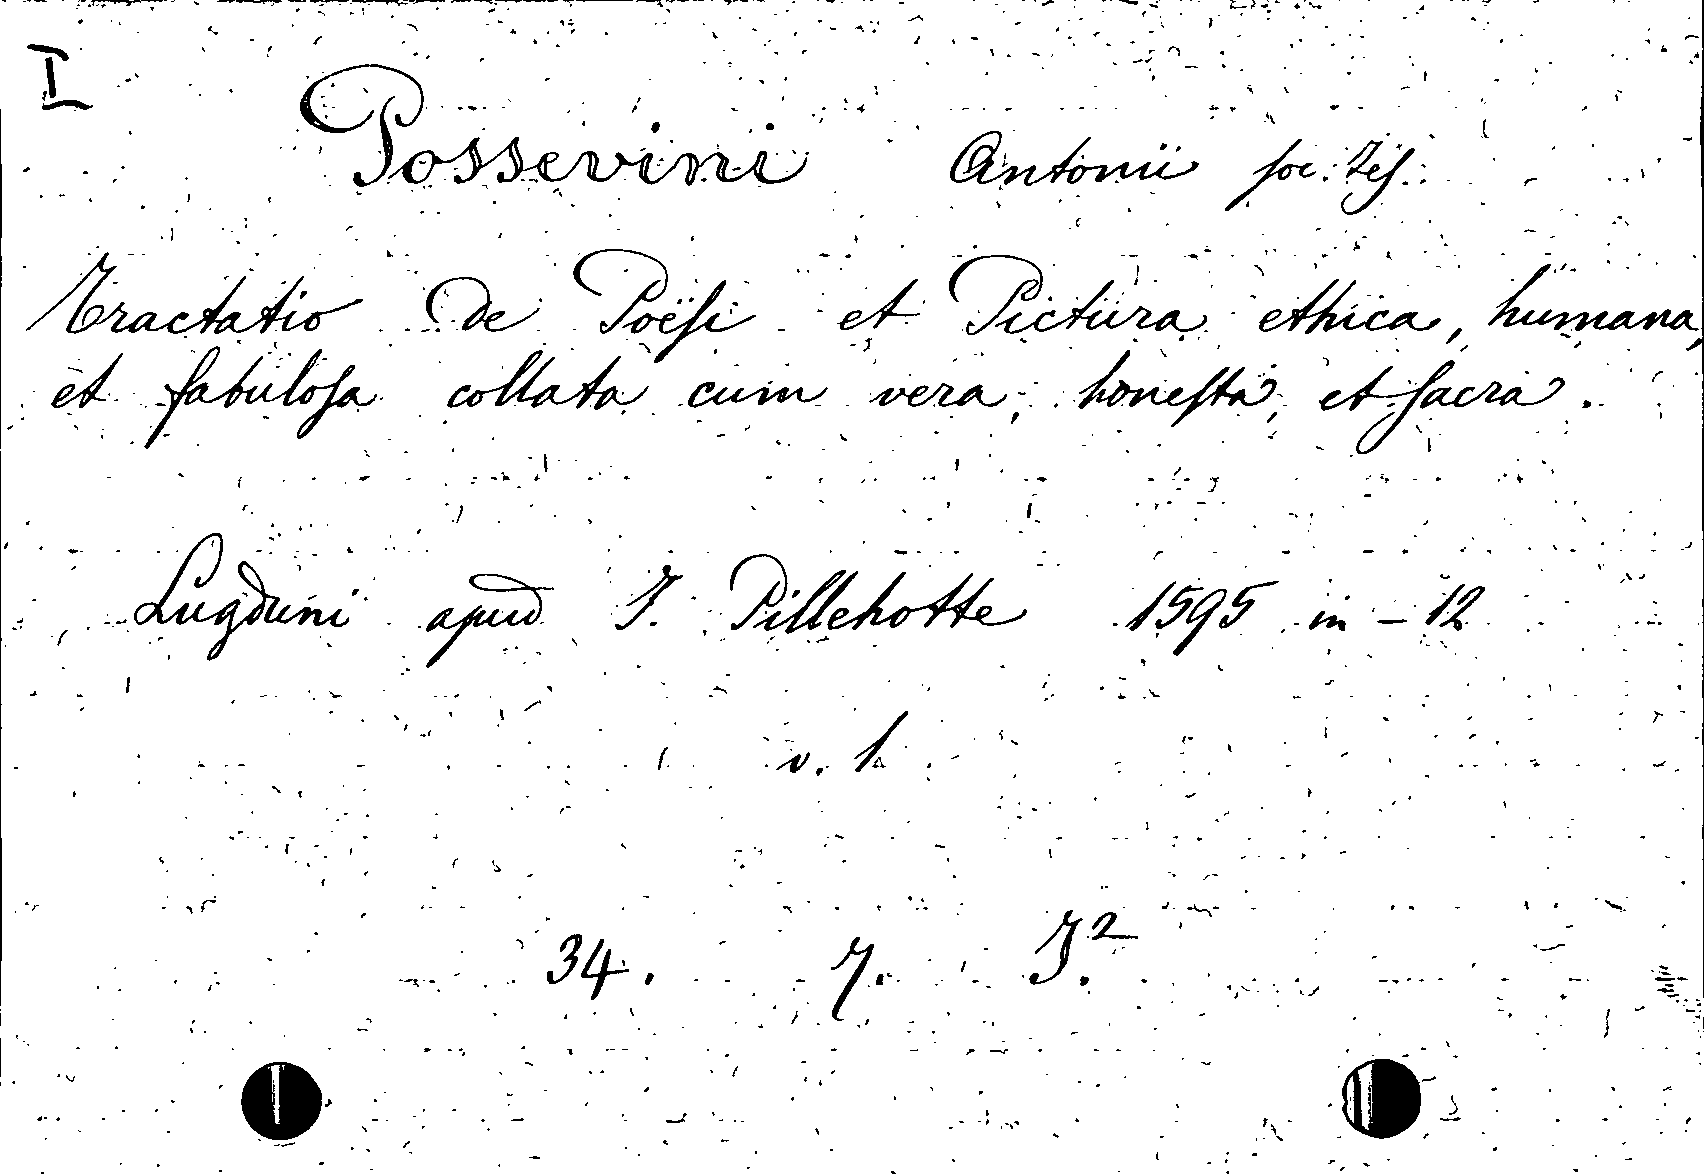 I
Possevini Antonii soc. Jes.
Tractatio de Poësi et Pictura ethica, humana,
et fabulosa collata cum vera, honesta, et sacra.
Lugduni apud J. Pillehotte 1595 in-12
v. 1
34. 7. J.²